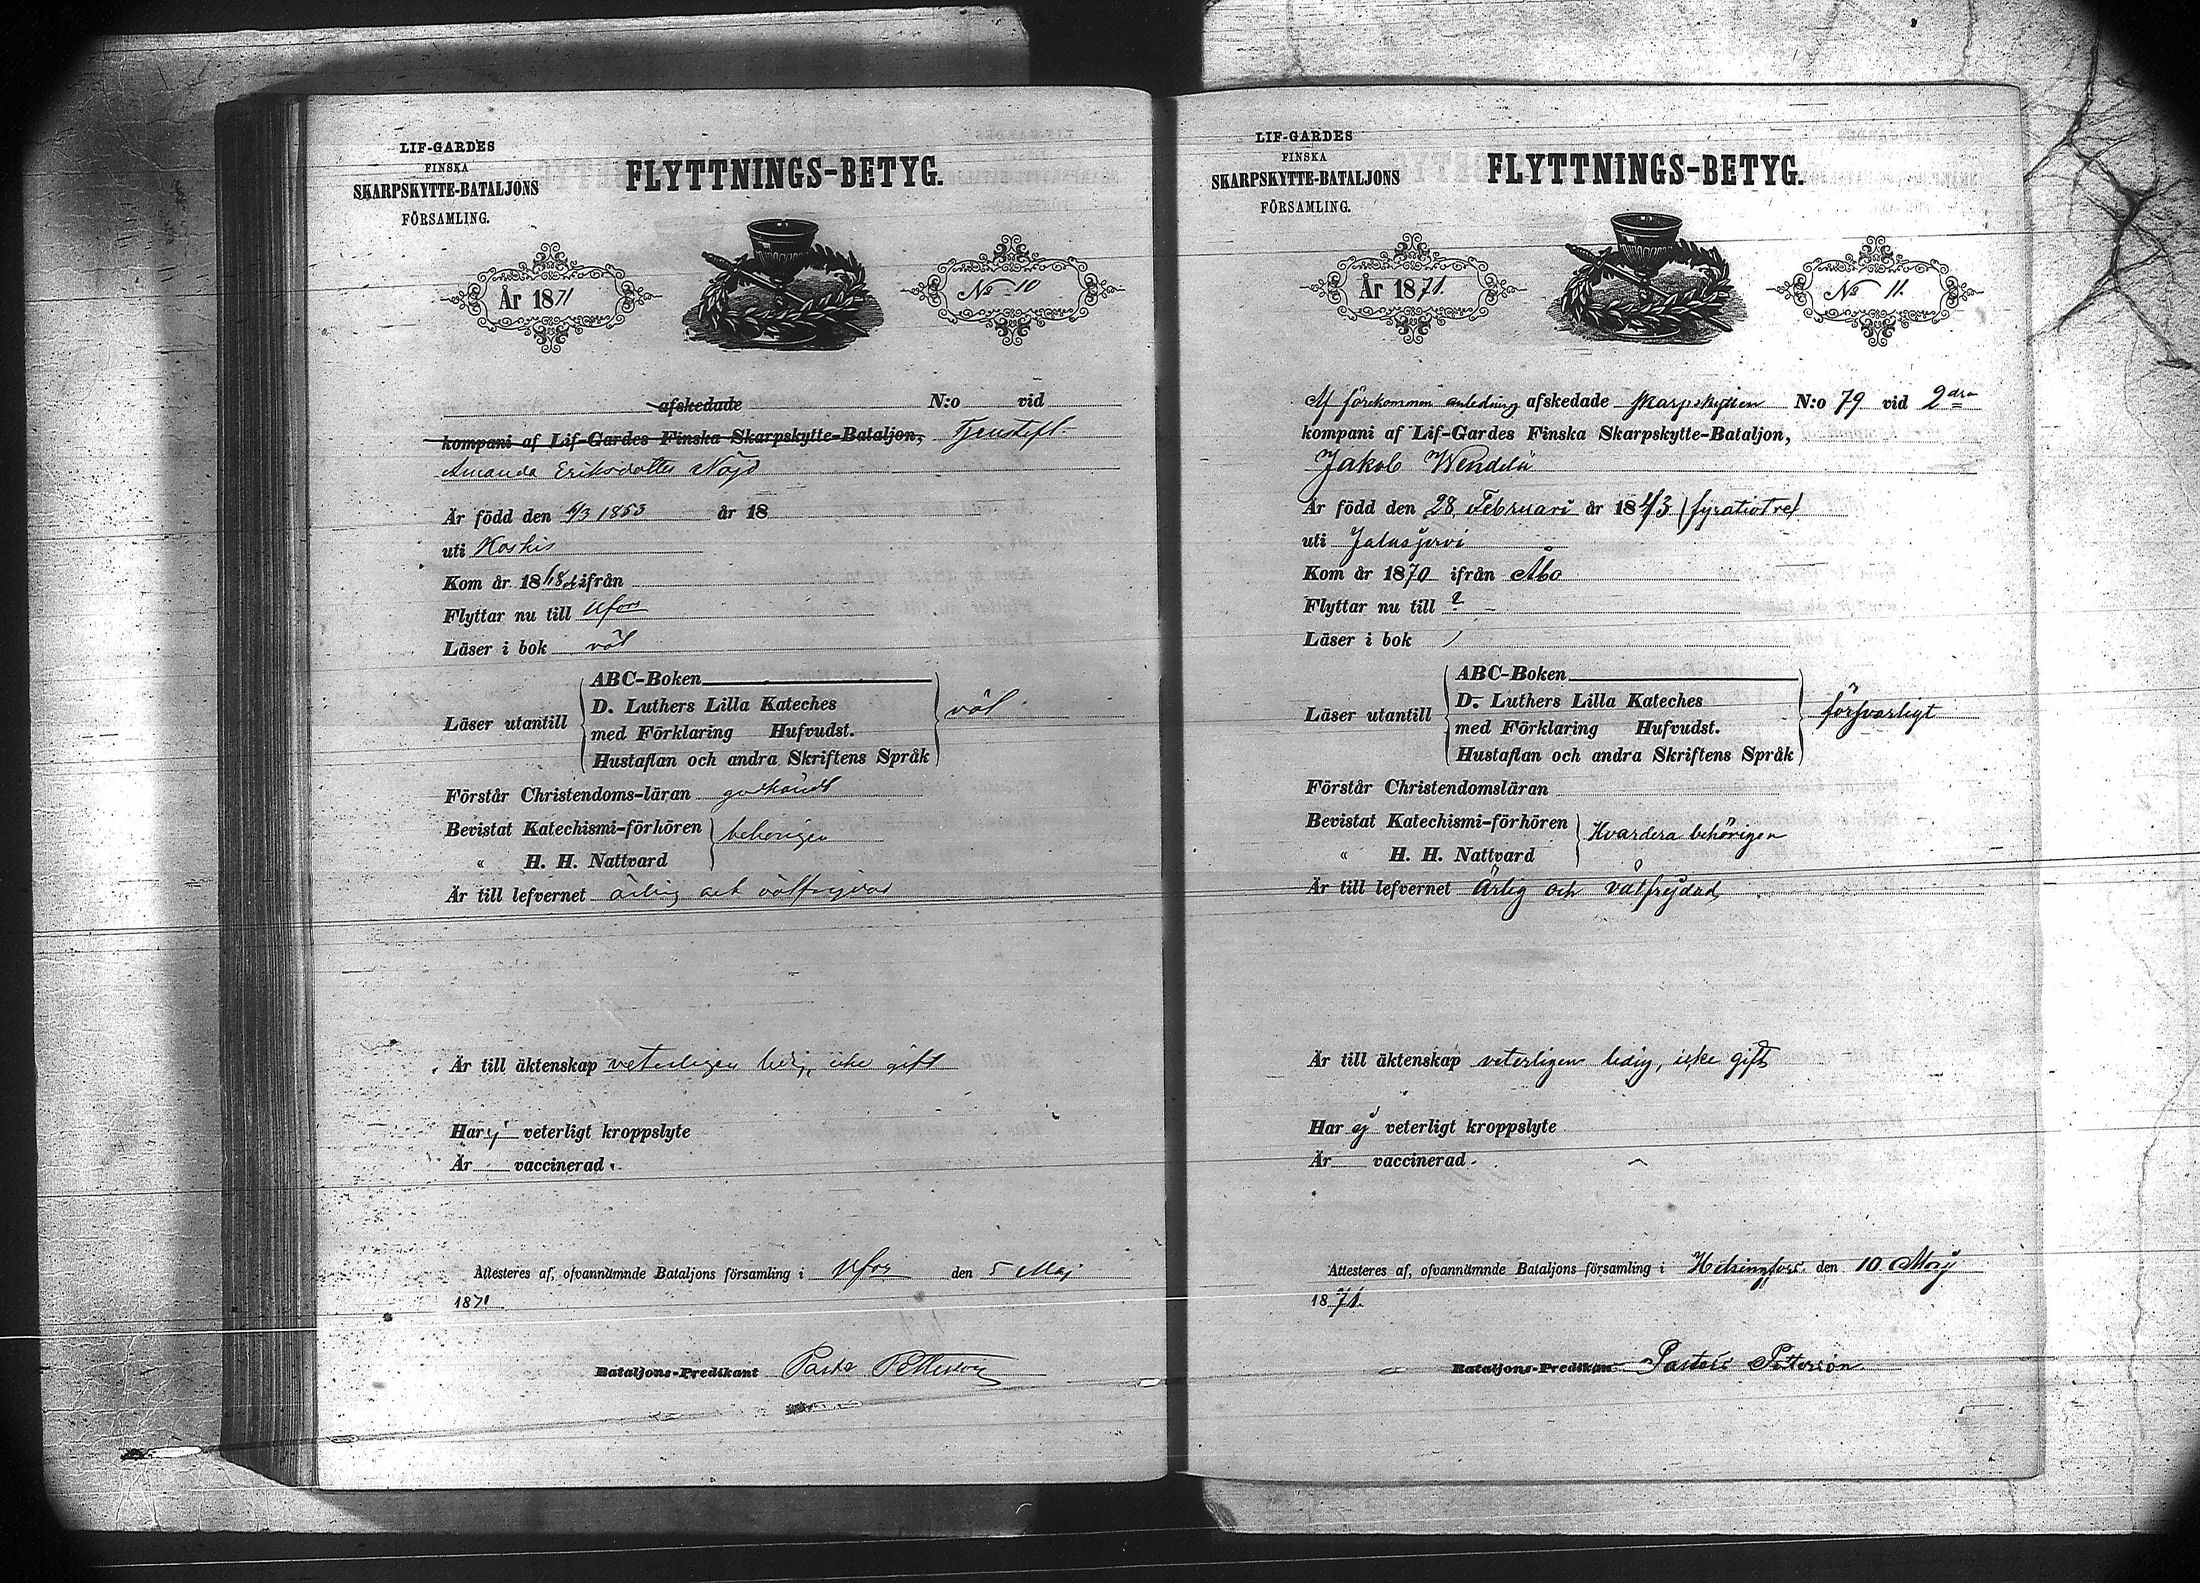 LIF-GARDES
FINSKA
SKARPSKYTTE-BATALJONS
FÖRSAMLING.
FLYTTNINGS-BETYG.
År 1871
No 10
afskedade N:o vid
kompani af Lif-Gardes Finska Skarpskytte-Bataljon, Tjenstefl.
Amanda Eriksdotter Nöjd
Är född den 6/3 1853 år 18
uti Koskis
Kom år 1868 ifrån
Flyttar nu till Hfors
Läser i bok väl
ABC-Boken
D. Luthers Lilla Kateches
Läser utantill med Förklaring Hufvudst. väl
Hustaflan och andra Skriftens Språk
Förstår Christendoms-läran godkändt
Bevistat Katechismi-förhören behörigen
« H. H. Nattvard
Är till lefvernet ärlig och välfrejdad
Är till äktenskap veterligen ledig, icke gift
Har ej veterligt kroppslyte
Är vaccinerad.
Attesteres af, ofvannämnde Bataljons församling i Hfors den 5 Maj
1871
Bataljons-Predikant Pastor Petterson
LIF-GARDES
FINSKA
SKARPSKYTTE-BATALJONS
FÖRSAMLING.
FLYTTNINGS-BETYG.
År 1871.
No 11.
Af förekommen anledning afskedade skarpskytten N:o 79 vid 2dra
kompani af Lif-Gardes Finska Skarpskytte-Bataljon,
Jakob Wendelä
Är född den 28 Februari år 1843 (fyratiotre)
uti Jalasjervi
Kom år 1870 ifrån Åbo
Flyttar nu till ?
Läser i bok
ABC-Boken
D. Luthers Lilla Kateches
Läser utantill med Förklaring Hufvudst. försvarligt
Hustaflan och andra Skriftens Språk
Förstår Christendomsläran
Bevistat Katechismi-förhören Hvardera behörigen
« H. H. Nattvard
Är till lefvernet Ärlig och välfrejdad
Är till äktenskap veterligen ledig, icke gift
Har ej veterligt kroppslyte
Är vaccinerad.
Attesteres af, ofvannämnde Bataljons församling i Helsingfors den 10 Maj
1871.
Bataljons-Predikant Pastor Petterson